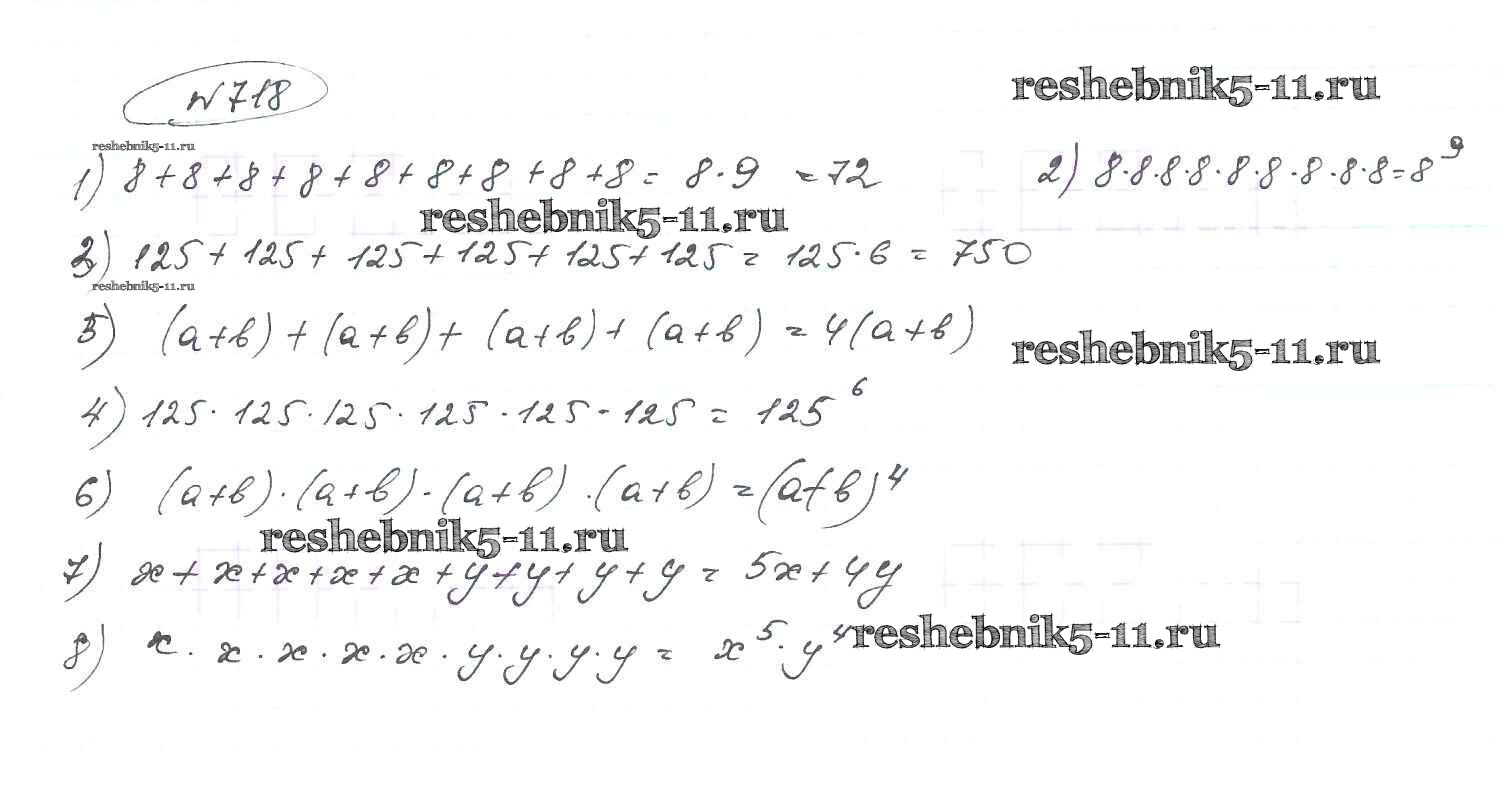 №718
reshebnik5-11.ru
reshebnik5-11.ru
1) 8+8+8+8+8+8+8+8+8= 8·9 =72
2) 8·8·8·8·8·8·8·8·8=8⁹
reshebnik5-11.ru
3) 125+125+125+125+125+125= 125·6 = 750
reshebnik5-11.ru
5) (a+b)+(a+b)+(a+b)+(a+b) = 4(a+b)
reshebnik5-11.ru
4) 125·125·125·125·125·125 = 125⁶
6) (a+b)·(a+b)·(a+b)·(a+b) = (a+b)⁴
reshebnik5-11.ru
7) x+x+x+x+x+y+y+y+y= 5x+4y
8) x·x·x·x·x·y·y·y·y = x⁵·y⁴
reshebnik5-11.ru